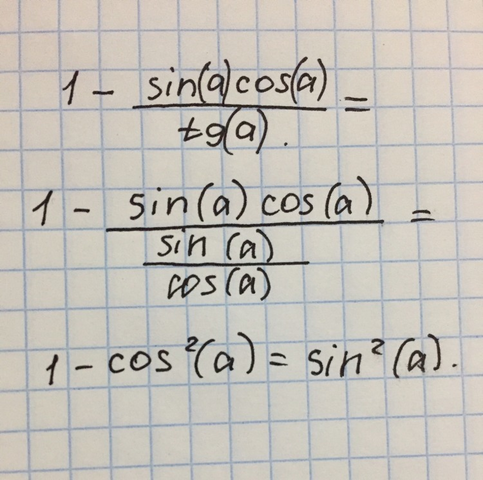 1 - sin(a)cos(a) / tg(a). =
1 - sin(a) cos(a) / (sin(a) / cos(a)) =
1 - cos²(a) = sin²(a).